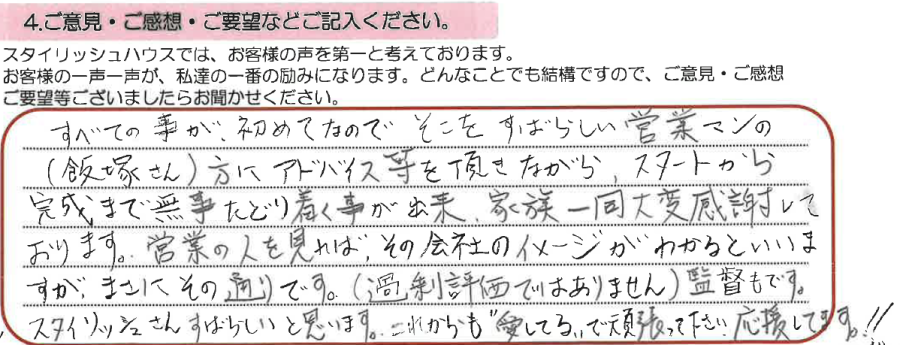 4.ご意見・ご感想・ご要望などご記入ください。
スタイリッシュハウスでは、お客様の声を第一と考えております。
お客様の一声一声が、私達の一番の励みになります。どんなことでも結構ですので、ご意見・ご感想
ご要望等ございましたらお聞かせください。
すべての事が、初めてなので そこを すばらしい営業マンの
(飯塚さん)方に アドバイス等を頂きながら、スタートから
完成まで無事たどり着く事が出来、家族一同大変感謝して
おります。営業の人を見れば、その会社のイメージがわかるといいま
すが、まさにその通りです。(過剰評価ではありません)監督もです。
スタイリッシュさんすばらしいと思います。これからも"愛してる"で頑張って下さい 応援してます。!!